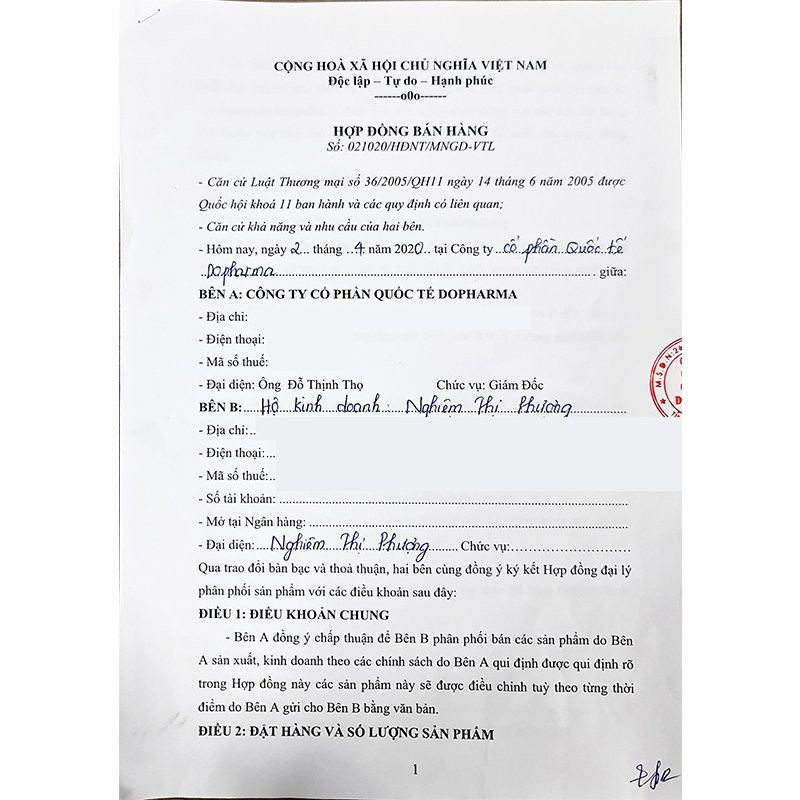 CỘNG HOÀ XÃ HỘI CHỦ NGHĨA VIỆT NAM
Độc lập – Tự do – Hạnh phúc
------o0o------
HỢP ĐỒNG BÁN HÀNG
Số: 021020/HĐNT/MNGD-VTL
- Căn cứ Luật Thương mại số 36/2005/QH11 ngày 14 tháng 6 năm 2005 được
Quốc hội khoá 11 ban hành và các quy định có liên quan;
- Căn cứ khả năng và nhu cầu của hai bên.
- Hôm nay, ngày 2... tháng ..4 năm 2020.. tại Công ty ..cổ phần Quốc tế
..Dopharma........ giữa:
BÊN A: CÔNG TY CỔ PHẦN QUỐC TẾ DOPHARMA
- Địa chỉ:
- Điện thoại:
- Mã số thuế:
- Đại diện: Ông Đỗ Thịnh Thọ Chức vụ: Giám Đốc
BÊN B:....Hộ kinh doanh: Nghiêm Thị Phương
- Địa chỉ:..
- Điện thoại:...
- Mã số thuế:..
- Số tài khoản: ........
- Mở tại Ngân hàng: ........
- Đại diện:....Nghiêm Thị Phượng........ Chức vụ:........
Qua trao đổi bàn bạc và thoả thuận, hai bên cùng đồng ý ký kết Hợp đồng đại lý
phân phối sản phẩm với các điều khoản sau đây:
ĐIỀU 1: ĐIỀU KHOẢN CHUNG
- Bên A đồng ý chấp thuận để Bên B phân phối bán các sản phẩm do Bên
A sản xuất, kinh doanh theo các chính sách do Bên A qui định được qui định rõ
trong Hợp đồng này các sản phẩm này sẽ được điều chỉnh tuỳ theo từng thời
điểm do Bên A gửi cho Bên B bằng văn bản.
ĐIỀU 2: ĐẶT HÀNG VÀ SỐ LƯỢNG SẢN PHẨM
1